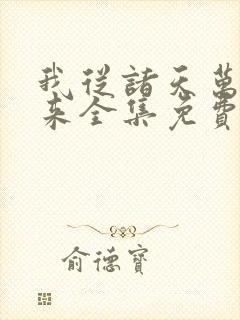 我從諸天萬
來全集免費
俞德寶